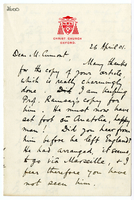 CHRIST CHURCH
OXFORD
26 April 01.
Dear M. Cumont,
Many thanks
for the copy of your article
which is really charmingly
done. I am keeping
Prof. Ramsay's copy for
him. He must now have
set foot on Anatolia, happy
man! Did you hear from
him before he left England?
He had arranged it seems
to go via Marseille, & I
fear therefore you have
not seen him.